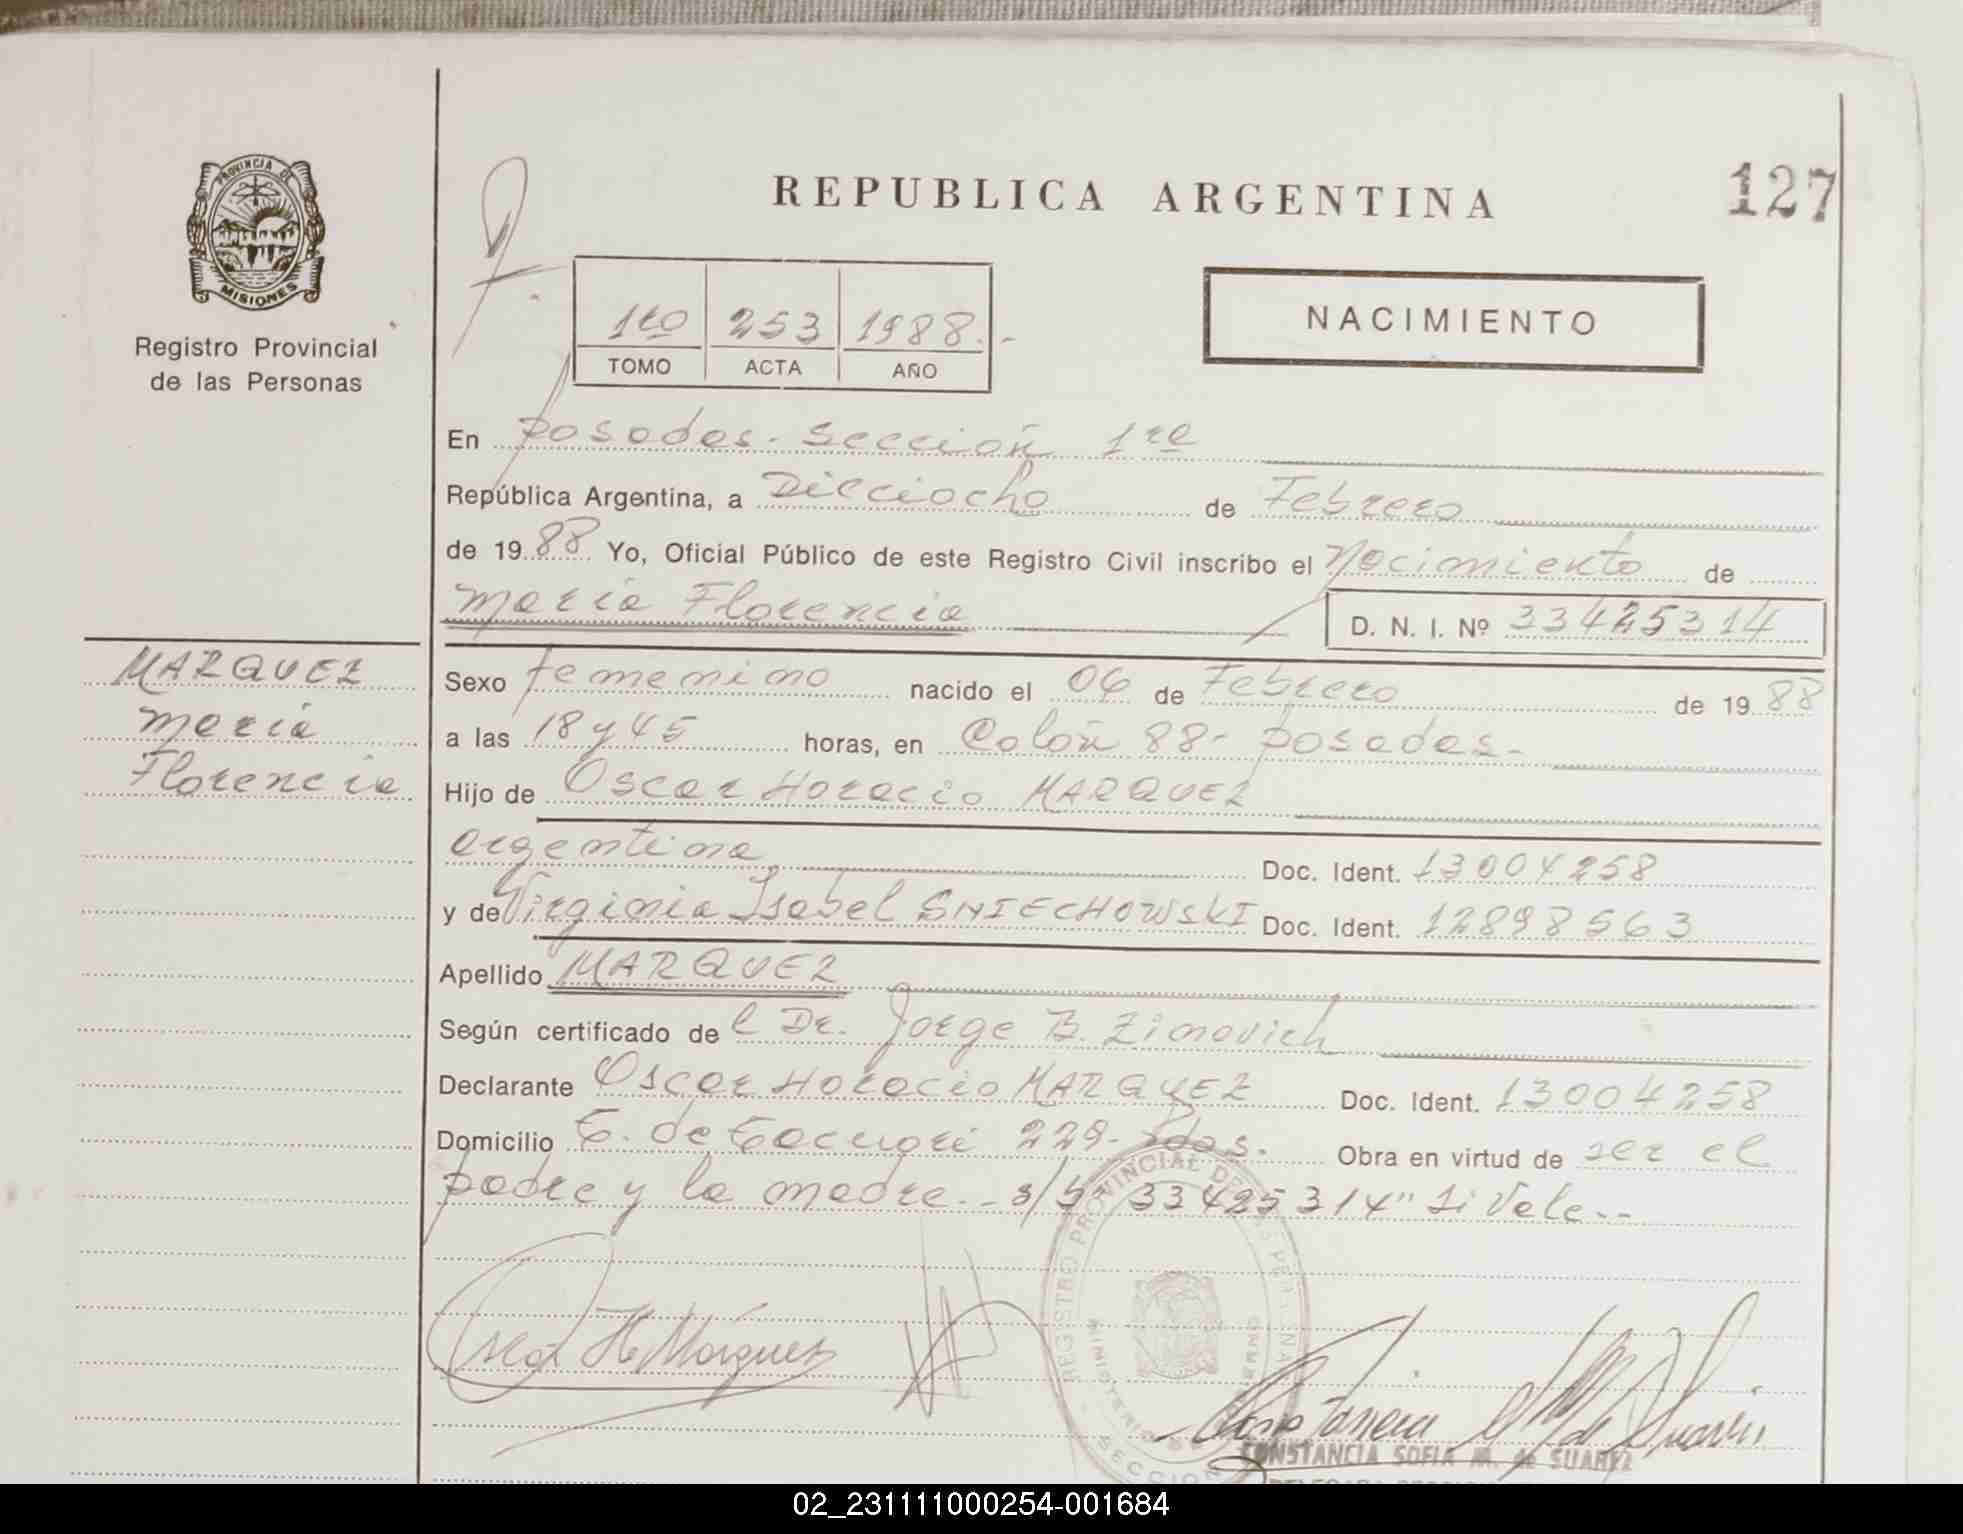 PROVINCIA DE
MISIONES
Registro Provincial
de las Personas
REPUBLICA ARGENTINA
127
1ro 253 1988.-
TOMO ACTA AÑO
NACIMIENTO
En Posadas - Sección 1ra
República Argentina, a Dieciocho de Febrero
de 1988 Yo, Oficial Público de este Registro Civil inscribo el Nacimiento de
María Florencia D. N. I. Nº 33425314
MARQUEZ
María
Florencia
Sexo femenino nacido el 06 de Febrero de 1988
a las 18 y 45 horas, en Colón 88- Posadas-
Hijo de Oscar Horacio MARQUEZ
argentina Doc. Ident. 13004258
y de Virginia Isabel SNIECHOWSKI Doc. Ident. 12898563
Apellido MARQUEZ
Según certificado del Dr. Jorge B. Zimovich
Declarante Oscar Horacio MARQUEZ Doc. Ident. 13004258
Domicilio 229- Pdas. Obra en virtud de ser el
padre y la madre.- s/b 33425314" Si Vale.-
Oscar H Márquez
REGISTRO PROVINCIAL DE LAS PERSONAS
MINISTERIO DE GOBIERNO
SECCION
CONSTANCIA SOFIA M. de SUAREZ
02_231111000254-001684